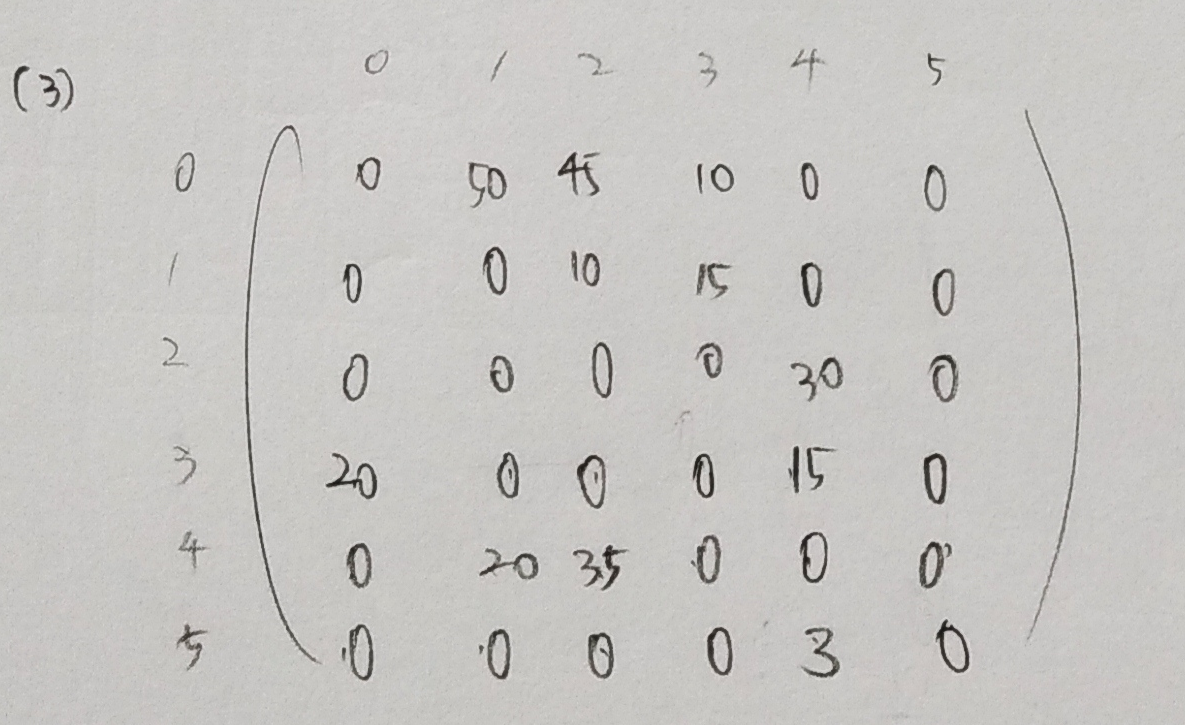 (3) 0 1 2 3 4 5
0 0 50 45 10 0 0
1 0 0 10 15 0 0
2 0 0 0 0 30 0
3 20 0 0 0 15 0
4 0 20 35 0 0 0
5 0 0 0 0 3 0